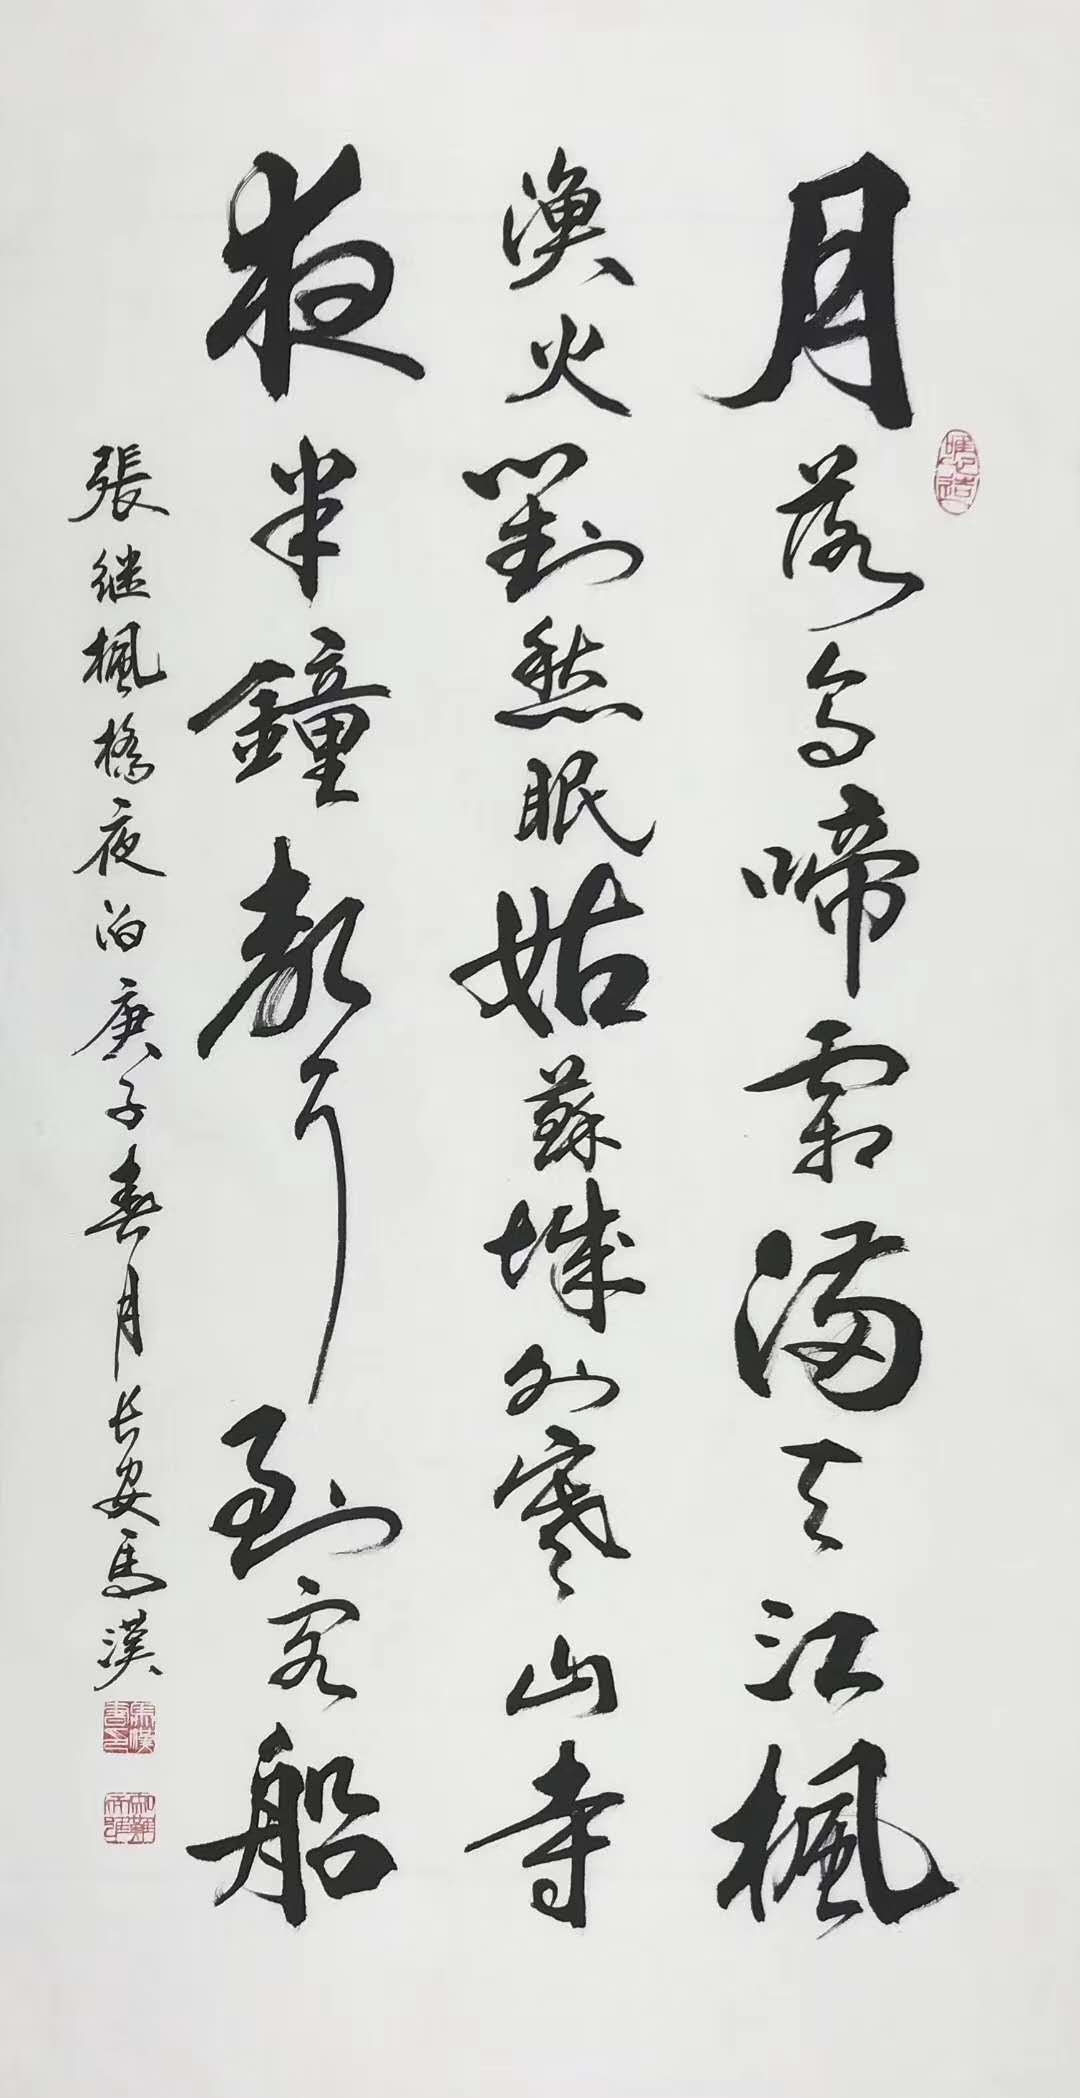 月落烏啼霜滿天江楓
漁火對愁眠姑蘇城外寒山寺
夜半鐘聲到客船
張继楓橋夜泊庚子春月长安馬漢
馬漢書印